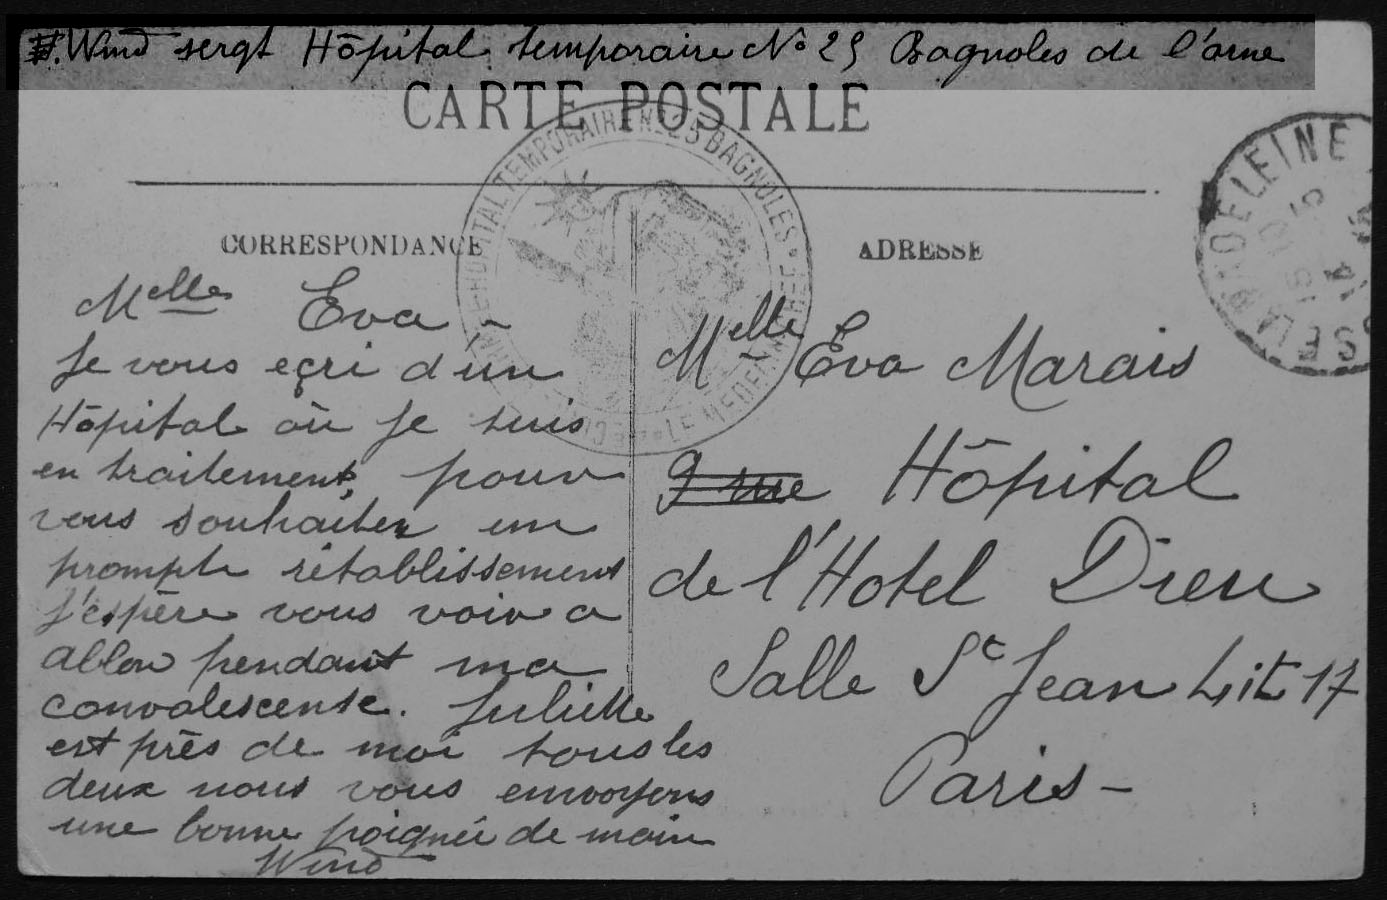 H. Wind sergt Hôpital temporaire No 25 Bagnoles de l'orne
CARTE POSTALE
HÔPITAL TEMPORAIRE N° 25 BAGNOLES
LE MÉDECIN CHEF
CORRESPONDANCE
ADRESSE
Melle Eva -
Je vous eçri d'un
Hôpital où je suis
en traitement, pour
vous souhaiter un
prompte rétablissement
J'éspère vous voir a
Ablon pendant ma
convalescense. Juliette
est près de moi tous les
deux nous vous envoyons
une bonne poignée de main
Wind
Melle Eva Marais
9 rue Hôpital
de l'Hotel Dieu
Salle St Jean Lit 17
Paris -